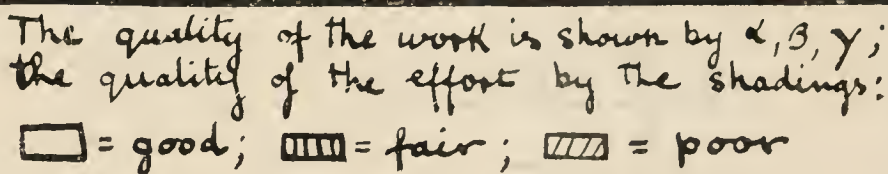 The quality of the work is shown by α, β, γ;
the quality of the effort by the shadings:
= good; = fair; = poor